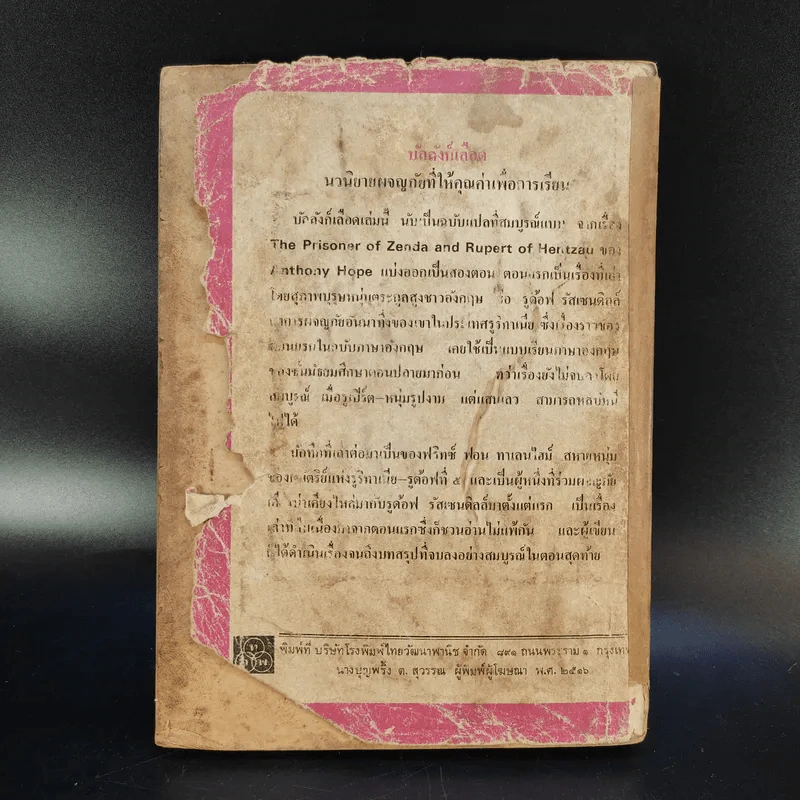 บัลลังก์เลือด
นวนิยายผจญภัยที่ให้คุณค่าเพื่อการเรียน
บัลลังก์เลือดเล่มนี้ นับเป็นฉบับแปลที่สมบูรณ์แบบ จากเรื่อง
The Prisoner of Zenda and Rupert of Hentzau ของ
Anthony Hope แบ่งออกเป็นสองตอน ตอนแรกเป็นเรื่องที่เล่า
โดยสุภาพบุรุษหนุ่มตระกูลสูงชาวอังกฤษ คือ รูดอ๊ฟ รัสเซนดิลล์
การผจญภัยอันน่าทึ่งของเขาในประเทศรูริทาเนีย ซึ่งเรื่องราวของ
ตอนแรกในฉบับภาษาอังกฤษ เคยใช้เป็นแบบเรียนภาษาอังกฤษ
ของชั้นมัธยมศึกษาตอนปลายมาก่อน ทว่าเรื่องยังไม่จบลงโดย
สมบูรณ์ เมื่อรูเปิร์ต-หนุ่มรูปงาม แต่แสนเลว สามารถหลบหนี
ไปได้
บันทึกที่เล่าต่อมาเป็นของฟริทซ์ ฟอน ทาเลนไฮม์ สหายหนุ่ม
ของกษัตริย์แห่งรูริทาเนีย-รูดอ๊ฟที่ ๕ และเป็นผู้หนึ่งที่ร่วมผจญภัย
เคียงบ่าเคียงไหล่มากับรูดอ๊ฟ รัสเซนดิลล์มาตั้งแต่แรก เป็นเรื่อง
เล่าที่ต่อเนื่องมาจากตอนแรกซึ่งก็ชวนอ่านไม่แพ้กัน และผู้เขียน
ก็ได้ดำเนินเรื่องจนถึงบทสรุปที่จบลงอย่างสมบูรณ์ในตอนสุดท้าย
พิมพ์ที่ บริษัทโรงพิมพ์ไทยวัฒนาพานิช จำกัด ๘๙๑ ถนนพระราม ๑ กรุงเทพ
นางบุญพริ้ง ต. สุวรรณ ผู้พิมพ์ผู้โฆษณา พ.ศ. ๒๕๑๖